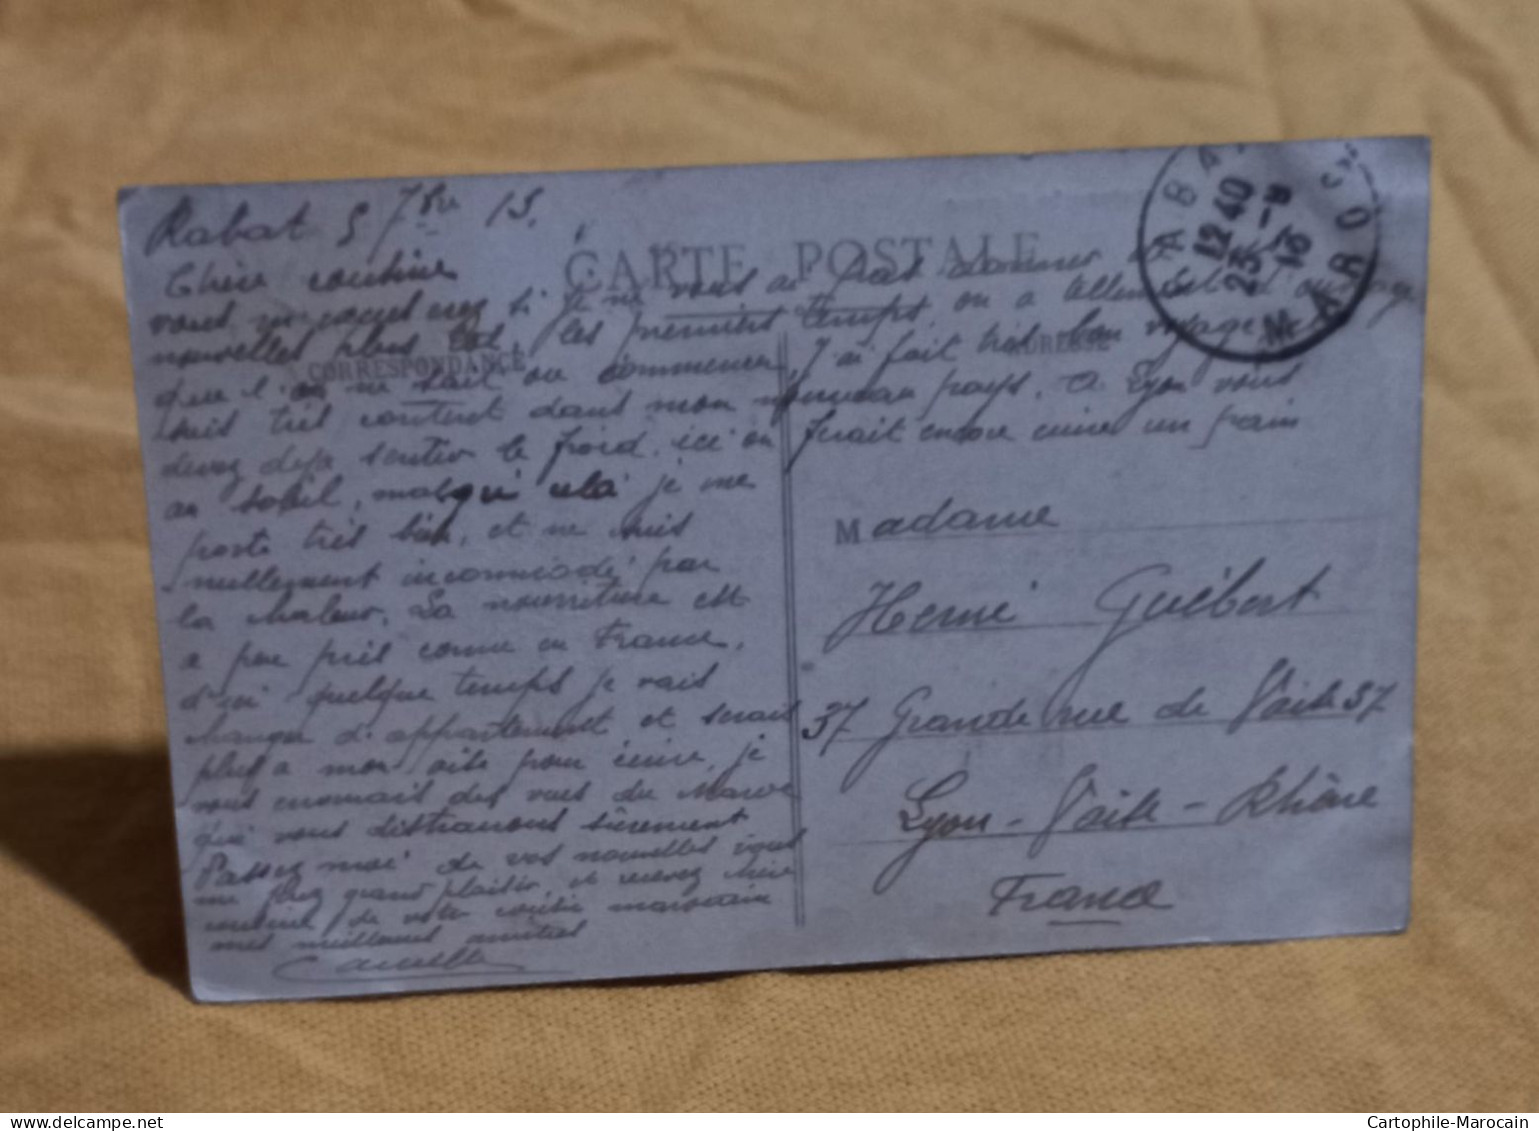 Rabat 5 7bre 13.
CARTE POSTALE
Chère cousine
vous m'excuserez si je ne vous ai pas donner de
nouvelles plus tôt, les premiers temps on a tellement
CORRESPONDANCE
ADRESSE
que l'on ne sait ou commencer, J'ai fait très bon voyage et
suis très content dans mon nouveau pays. A Lyon vous
devez déjà sentir le froid, ici on ferait encore cuire un pain
au soleil, malgré cela je me
porte très bien, et ne suis
nullement incommodé par
la chaleur. La nourriture est
a peu près comme en France,
d'ici quelque temps je vais
changer d'appartement et serais
plus a mon aise pour écrire, je
vous enverrais des vues du Maroc
qui vous distrairont sûrement
Passez moi de vos nouvelles vous
me ferez grand plaisir, et recevez chère
cousine de votre cousin marocain
mes meilleures amitiés
Camille
RABAT
12 40
23 -9
13
MAROC
Madame
Henri Guébert
37 Grande rue de Vaise 37
Lyon - Vaise - Rhône
France
Cartophile-Marocain
delcampe.net